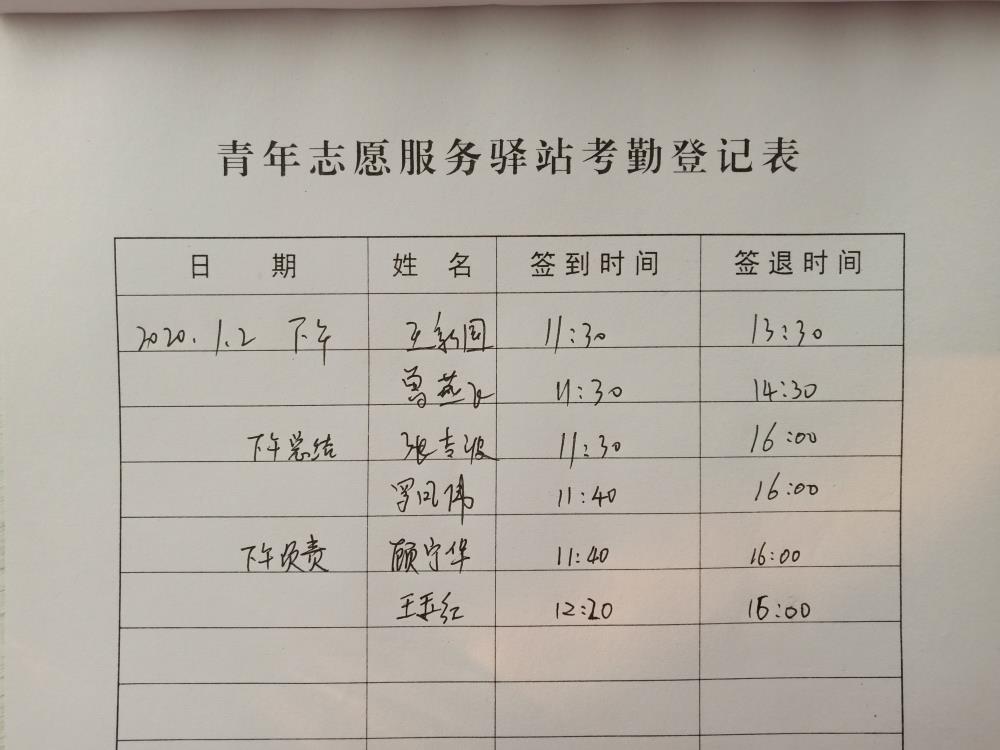 青年志愿服务驿站考勤登记表
日 期 姓 名 签到时间 签退时间
2020.1.2 下午 王新国 11:30 13:30
曾燕飞 11:30 14:30
下午总结 张吉波 11:30 16:00
罗凤伟 11:40 16:00
下午负责 顾守华 11:40 16:00
王玉红 12:20 16:00